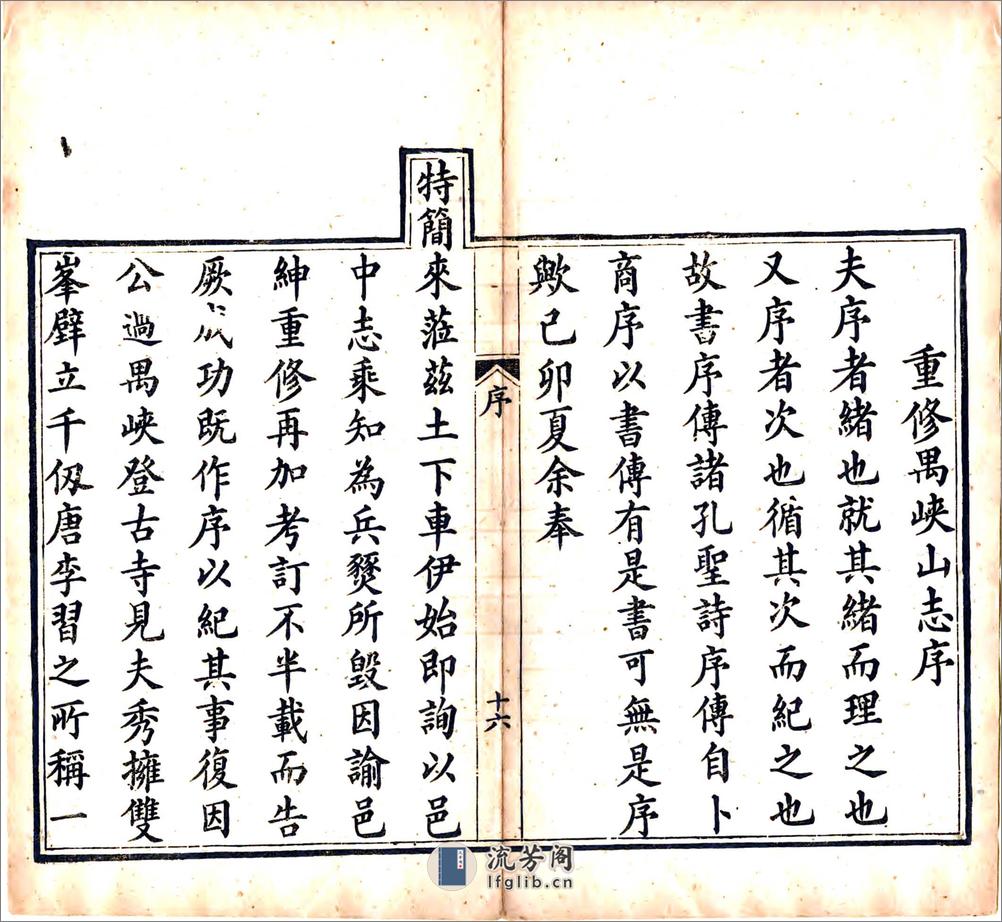 重修禺峽山志序
夫序者緒也就其緒而理之也
又序者次也循其次而紀之也
故書序傳諸孔聖詩序傳自卜
商序以書傳有是書可無是序
歟己卯夏余奉
序
十六
特簡來蒞茲土下車伊始即詢以邑
中志乘知為兵燹所毀因諭邑
紳重修再加考訂不半載而告
厥成功既作序以紀其事復因
公過禺峽登古寺見夫秀擁雙
峯壁立千仭唐李習之所稱一
流芳阁
lfglib.cn